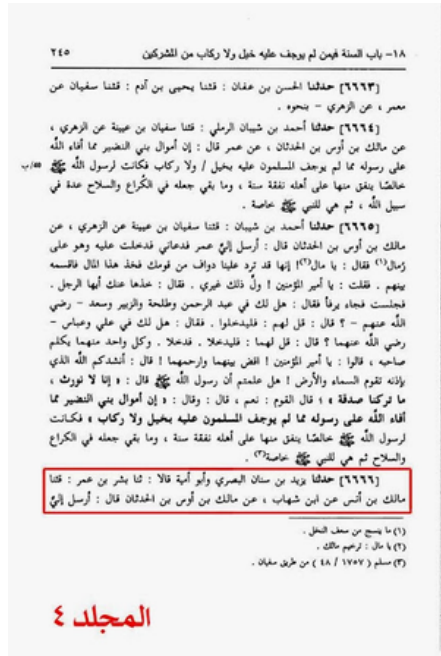 ١٨- باب السنة فيمن لم يوجف عليه خيل ولا ركاب من المشركين ٢٤٥
[٦٦٦٣] حدثنا الحسن بن عفان : قثنا يحيى بن آدم : قثنا سفيان عن
معمر ، عن الزهري – بنحوه .
[٦٦٦٤] حدثنا أحمد بن شيبان الرملي : قثنا سفيان بن عيينة عن الزهري ،
عن مالك بن أوس بن الحدثان ، عن عمر قال : إن أموال بني النضير مما أفاء الله
على رسوله مما لم يوجف المسلمون عليه بخيل / ولا ركاب فكانت لرسول الله ﷺ
خالصًا ينفق منها على أهله نفقة سنة ، وما بقي جعله في الكُراع والسلاح عدة في
سبيل الله ، ثم هي للنبي ﷺ خاصة .
[٦٦٦٥] حدثنا أحمد بن شيبان : قثنا سفيان بن عيينة عن الزهري ، عن
مالك بن أوس بن الحدثان قال : أرسل إليَّ عمر فدعاني فدخلت عليه وهو على
رُمال(١) فقال : يا مال(٢)! إنها قد ترد علينا دواف من قومك فخذ هذا المال فاقسمه
بينهم . فقلت : يا أمير المؤمنين ! ولِّ ذلك غيري . فقال : خذها عنك أيها الرجل .
فجلست فجاء يرفأ فقال : هل لك في عبد الرحمن وطلحة والزبير وسعد – رضي
الله عنهم – ؟ قال : قل لهم : فليدخلوا . فقال : هل لك في علي وعباس –
رضي الله عنهما ؟ قال : قل لهما : فليدخلا . فدخلا . وكل واحد منهما يكلم
صاحبه ، قالوا : يا أمير المؤمنين ! اقض بينهما وارحمهما ! قال : أنشدكم الله الذي
بإذنه تقوم السماء والأرض ! هل علمتم أن رسول الله ﷺ قال : « إنا لا نورث ،
ما تركنا صدقة » ؟ قال القوم : نعم ، قال : وقال : « إن أموال بني النضير مما
أفاء الله على رسوله مما لم يوجف المسلمون عليه بخيل ولا ركاب » فكانت
لرسول الله ﷺ خالصًا ينفق منها على أهله نفقة سنة ، وما بقي جعله في الكراع
والسلاح ثم هي للنبي ﷺ خاصة(٣) .
[٦٦٦٦] حدثنا يزيد بن سنان البصري وأبو أمية قالا : ثنا بشر بن عمر : قثنا
مالك بن أنس عن ابن شهاب ، عن مالك بن أوس بن الحدثان قال : أرسل إليَّ
(١) ما ينسج من سعف النخل .
(٢) يا مال : ترخيم مالك .
(٣) مسلم ( ١٧٥٧ / ٤٨ ) من طريق سفيان .
المجلد ٤